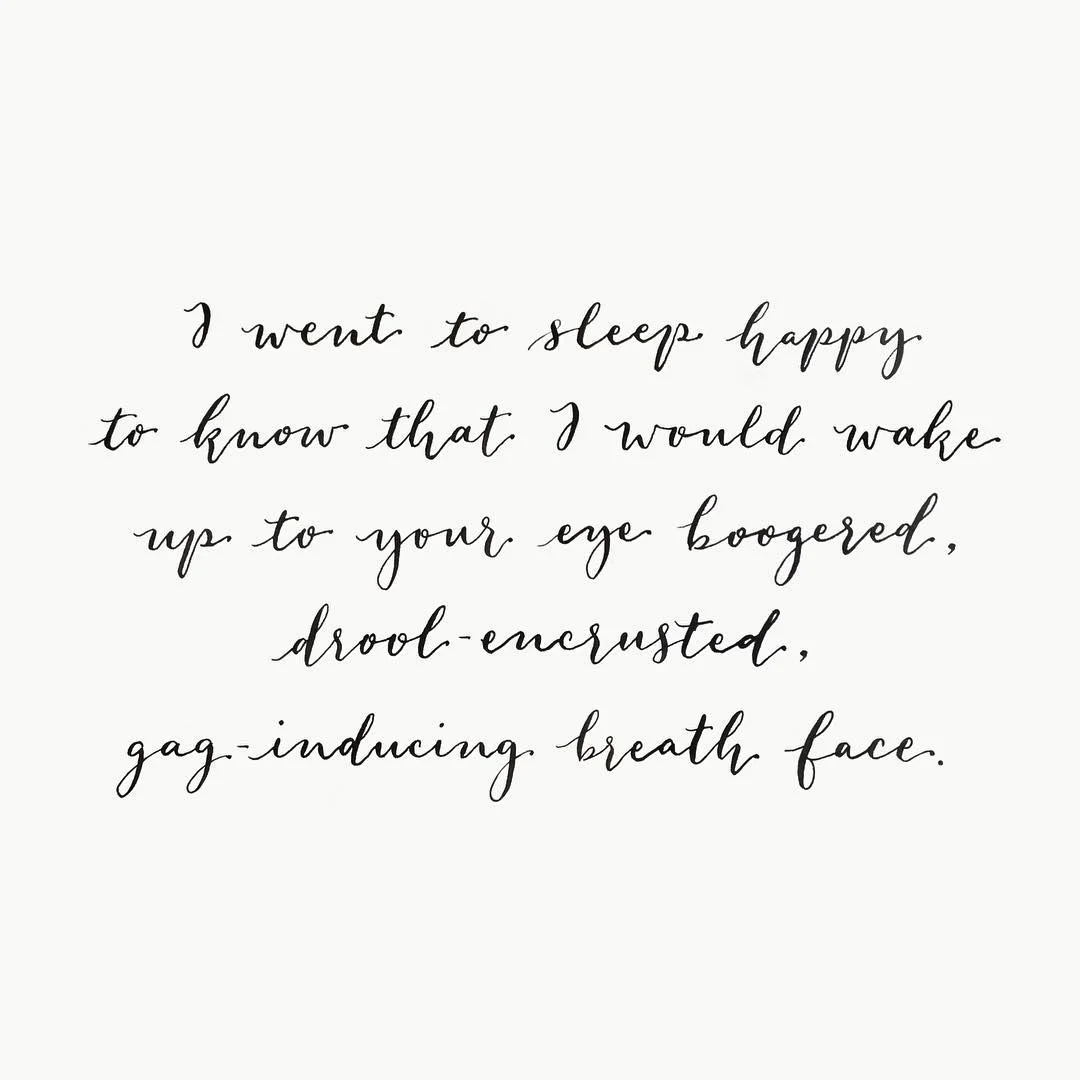 I went to sleep happy
to know that I would wake
up to your eye boogered,
drool-encrusted,
gag-inducing breath face.